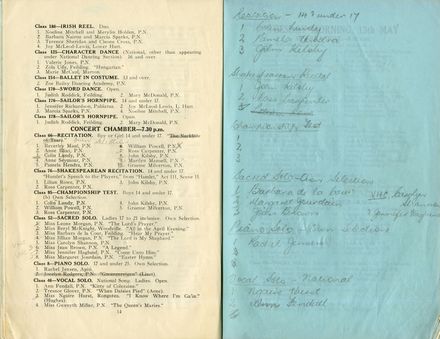 Class 180—IRISH REEL. Duo.
1. Noeline Mitchell and Marylin Holden, P.N.
2. Barbara Nairne and Marcia Sparks, P.N.
3. Terence Sheridan and Cherie Cross, P.N.
4. Joy McLeod-Lewis, Lower Hutt.
Class 185—CHARACTER DANCE (National, other than appearing
under National Dancing Section). 16 and over
1. Valerie Jones, P.N.
2. Zola Udy, Feilding. "Hungarian."
3. Marie McCaul, Marton.
Class 154—BALLET IN COSTUME. 13 and over.
Zoe Bailey Dancing Academy, P.N.
Class 170—SWORD DANCE. Open.
1. Judith Roddick, Feilding. 2. Mary McDonald, P.N.
Class 176—SAILOR'S HORNPIPE. 14 and under 17.
1. Jennifer Richardson, Pahiatua. 3. Joy McLeod-Lewis, L. Hutt
2. Marcia Sparks, P.N. 4. Noeline Mitchell, P.N.
Class 178—SAILOR'S HORNPIPE. Open.
1. Judith Roddick, Feilding. 2. Mary McDonald, P.N.
CONCERT CHAMBER—7.30 p.m.
Class 66—RECITATION. Boy or Girl 14 and under 17.
1. Beverley Maul, P.N. William Powell, P.N.
2. Anne Blair, P.N. Ross Carpenter, P.N.
Colin Landy, P.N. John Kilsby, P.N.
Anne Seymour, P.N. Marilyn Mansell, P.N.
Pamela Heald, P.N. Graeme Milverton, P.N.
Class 76—SHAKESPEAREAN RECITATION. 14 and under 17
"Hamlet's Speech to the Players," from "Hamlet," Act III, Scene II.
1. Lilian Rosen, P.N. 3. John Kilsby, P.N.
2. Ross Carpenter, P.N.
Class 95—CHAMPIONSHIP TEST. Boys 14 and under 17.
(b) Own Selection.
1. Colin Landy, P.N. 4. John Kilsby, P.N.
2. William Powell, P.N. 5. Graeme Milverton, P.N.
3. Ross Carpenter, P.N.
Class 12—SACRED SOLO. Ladies 17 to 21 inclusive. Own Selection.
1. Miss Leone Morgan, P.N. "The Lord's Prayer."
2. Miss Beryl McKnight, Woodville. "All in the April Evening"
3. Miss Barbara de la Cour, Feilding. "Hear My Prayer."
4. Miss Jillian Morgan, P.N. "The Lord is My Shepherd."
5. Miss Carolyn Shannon, P.N.
6. Miss Jean Brown, P.N. "A Legend."
7. Miss Jennifer Haglund, P.N. "Come Unto Him."
8. Miss Margaret Jourdain, P.N. "Easter Hymn."
Class 8—PIANO SOLO. 17 and under 21. Own Selection.
1. Rachel Jensen, Apiti.
Class 46—VOCAL SOLO. National Song. Ladies. Open.
1. Ann Fendall, P.N. "Kitty of Coleraine."
2. Tressie Glover, P.N. "When Daisies Pied" (Arne).
3. Miss Ngaire Hurst, Rongotea. "I Know Where I'm Goin'."
(Hughes).
4. Miss Gwenyth Millar, P.N. "The Queen's Maries."
14
under 17
2
3
John Kilsby
Shakespearean Recital
John Kilsby
Ross Carpenter
Championship Test
1
2
3
Sacred Solo - Own Selection
Barbara de la Cour
Margaret Jourdain
Carolyn
Shannon
Piano Solo - Own Selections
Rachel Jensen
2
3
Vocal Solo - National
Ngaire Hurst
Ann Fendall